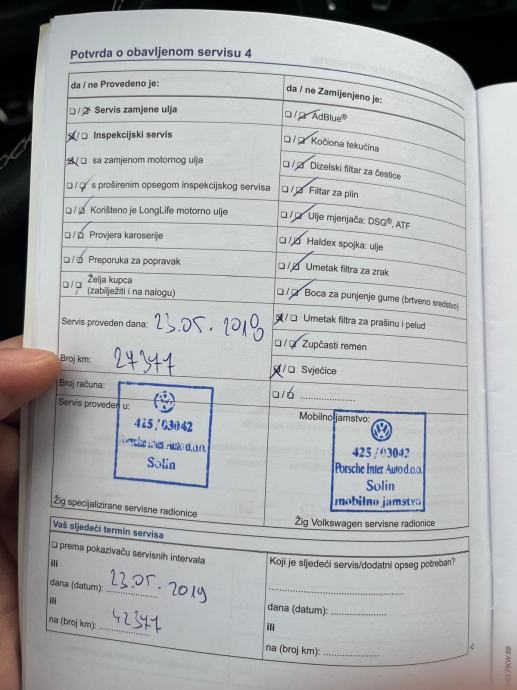 Potvrda o obavljenom servisu 4
da / ne Provedeno je:
Servis zamjene ulja
Inspekcijski servis
sa zamjenom motornog ulja
s proširenim opsegom inspekcijskog servisa
Korišteno je LongLife motorno ulje
Provjera karoserije
Preporuka za popravak
Želja kupca
(zabilježiti i na nalogu)
Servis proveden dana: 23.05.2018
Broj km: 27377
Broj računa:
Servis proveden u:
425/03042
Porsche Inter Auto d.o.o.
Solin
Žig specijalizirane servisne radionice
da / ne Zamijenjeno je:
AdBlue®
Kočiona tekućina
Dizelski filtar za čestice
Filtar za plin
Ulje mjenjača: DSG®, ATF
Haldex spojka: ulje
Umetak filtra za zrak
Boca za punjenje gume (brtveno sredstvo)
Umetak filtra za prašinu i pelud
Zupčasti remen
Svjećice
Mobilno jamstvo:
425/03042
Porsche Inter Auto d.o.o.
Solin
mobilno jamstvo
Žig Volkswagen servisne radionice
Vaš sljedeći termin servisa
prema pokazivaču servisnih intervala
ili
dana (datum): 23.05.2019
ili
na (broj km): 42377
Koji je sljedeći servis/dodatni opseg potreban?
dana (datum):
ili
na (broj km):